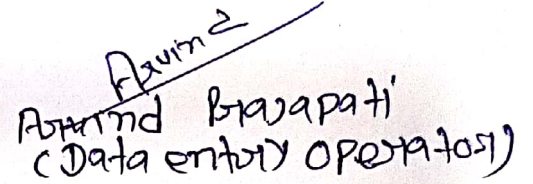 Arvind
Arvind Prajapati
(Data entory Operator)